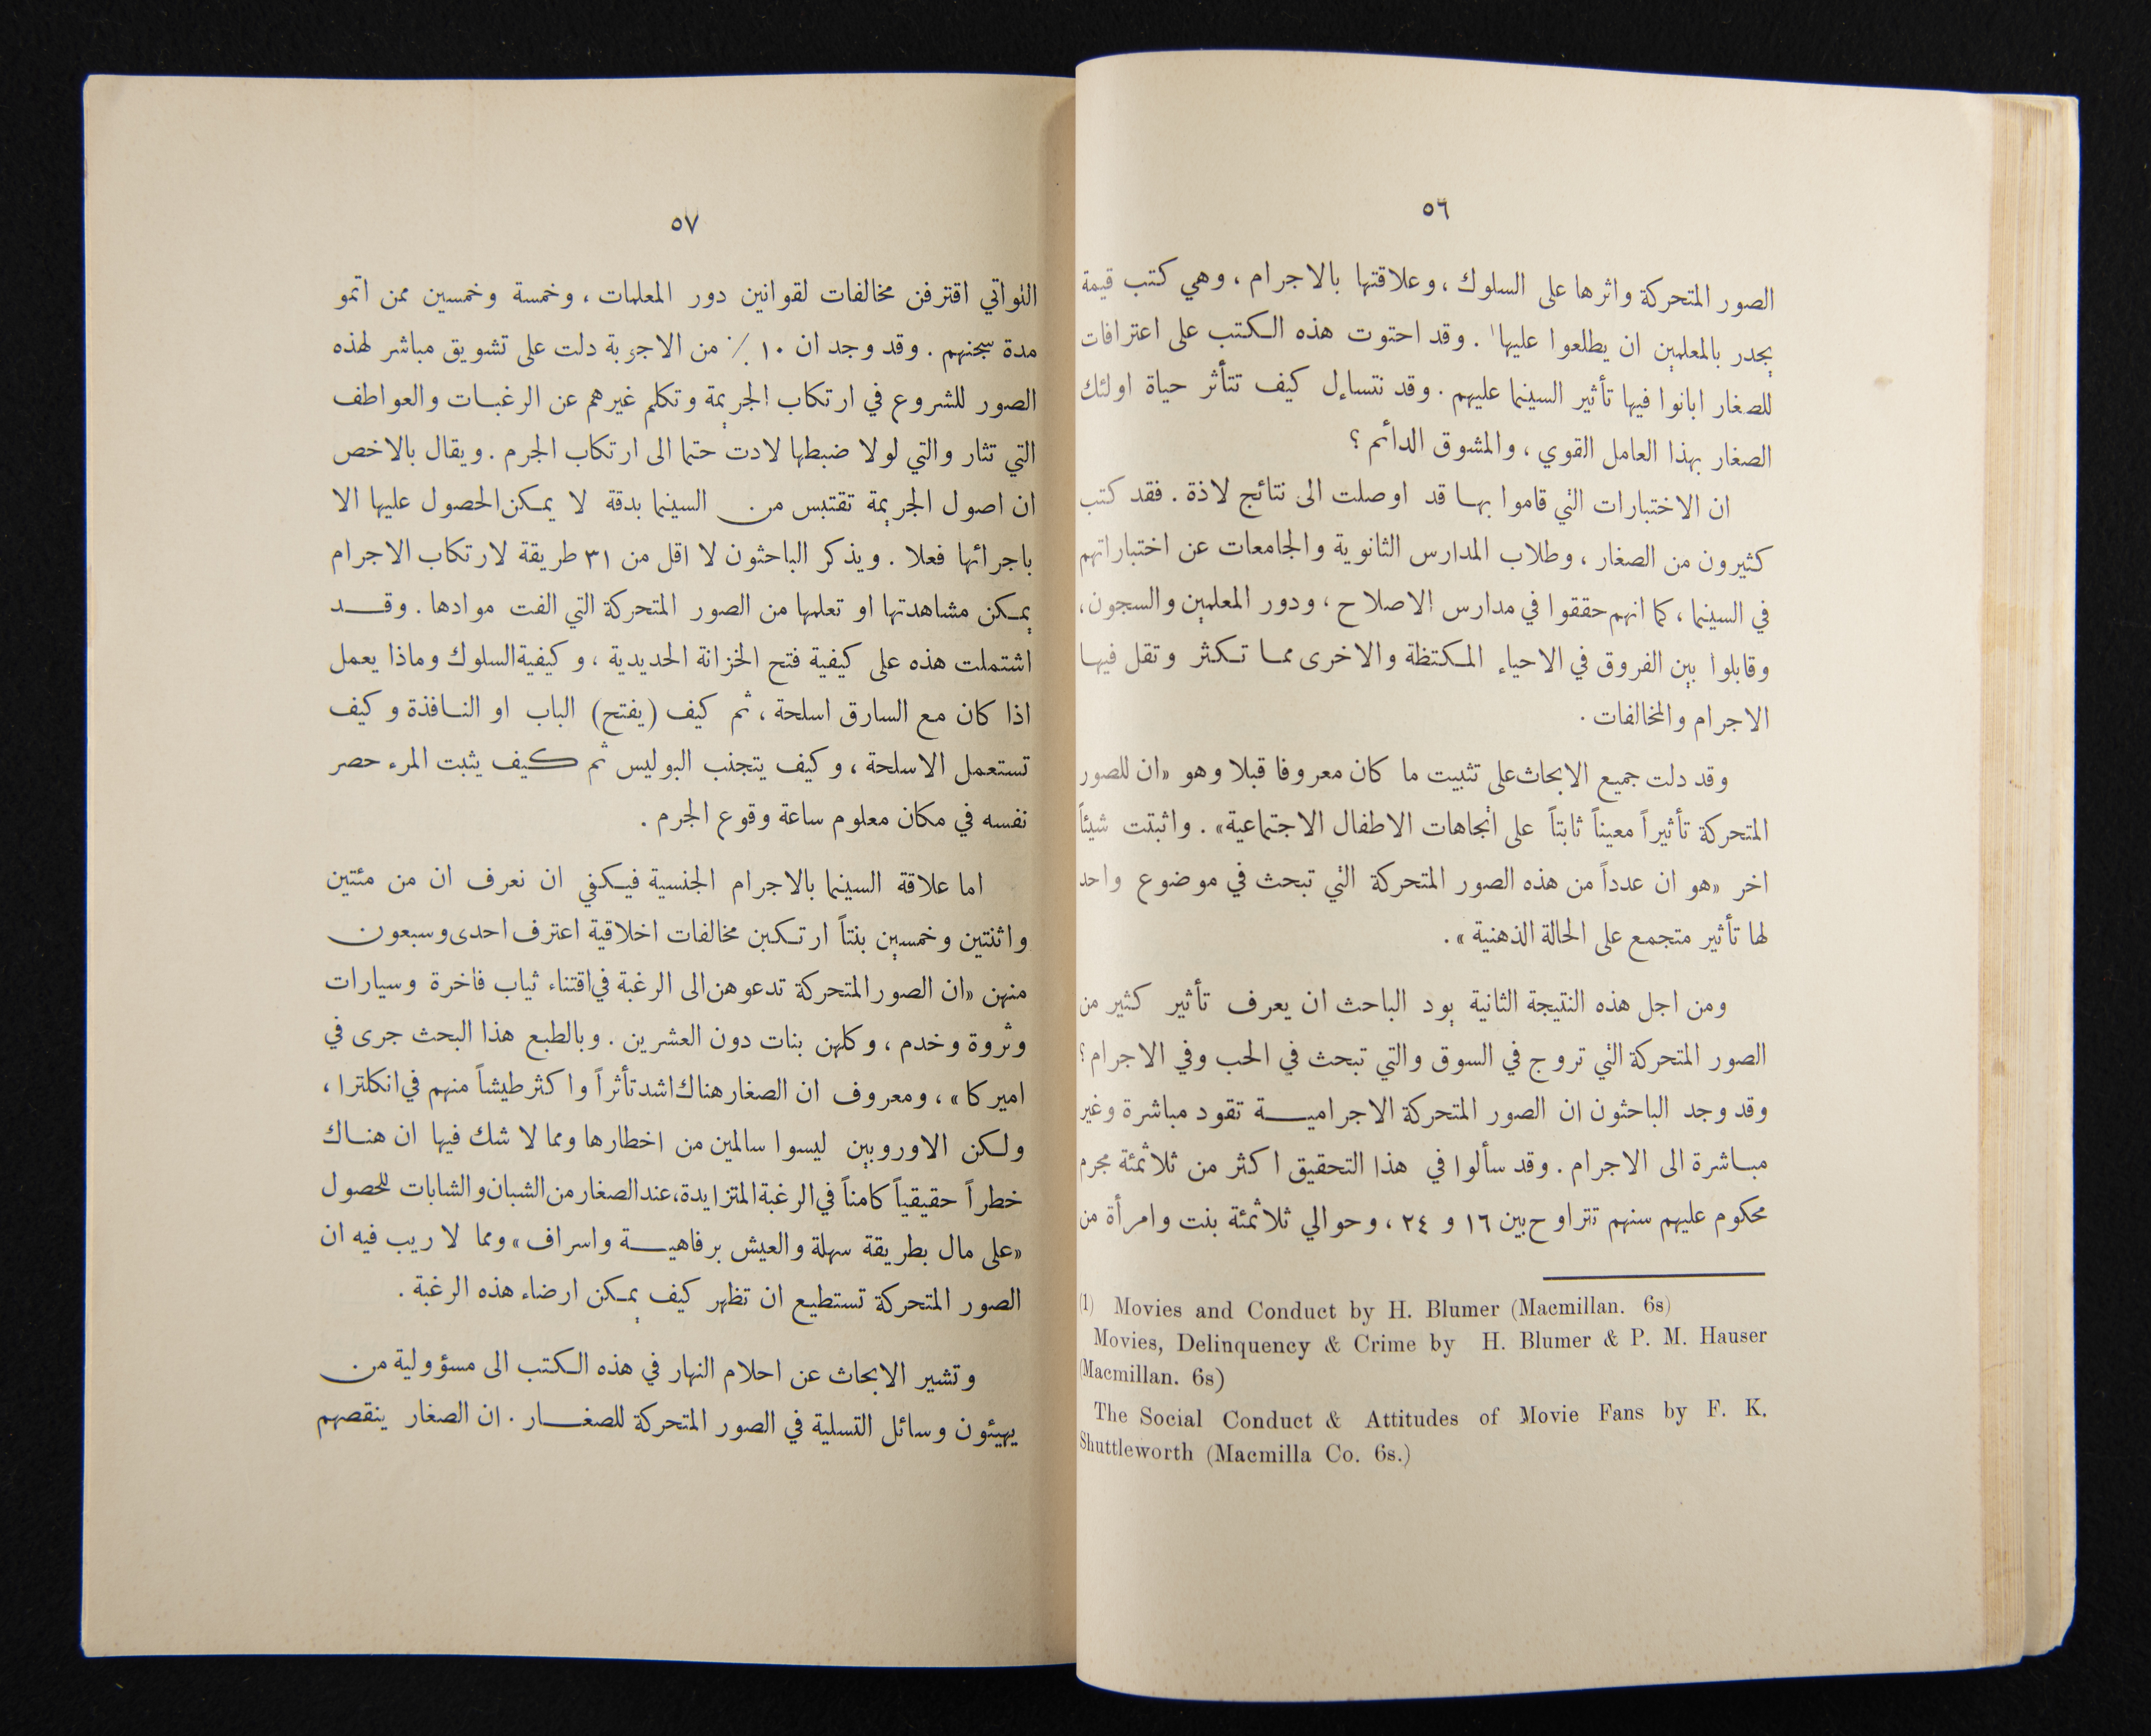 ٥٦
الصور المتحركة واثرها على السلوك ، وعلاقتها بالاجرام ، وهي كتب قيمة
يجدر بالمعلمين ان يطلعوا عليها١ . وقد احتوت هذه الكتب على اعترافات
للصغار ابانوا فيها تأثير السينما عليهم . وقد نتساءل كيف تتأثر حياة اولئك
الصغار بهذا العامل القوي ، والمشوق الدائم ؟
ان الاختبارات التي قاموا بها قد اوصلت الى نتائج لاذة . فقد كتب
كثيرون من الصغار ، وطلاب المدارس الثانوية والجامعات عن اختباراتهم
في السينما ، كما انهم حققوا في مدارس الاصلاح ، ودور المعلمين والسجون ،
وقابلوا بين الفروق في الاحياء المكتظة والاخرى مما تكثر وتقل فيها
الاجرام والمخالفات .
وقد دلت جميع الابحاث على تثبيت ما كان معروفا قبلا وهو «ان للصور
المتحركة تأثيراً معيناً ثابتاً على اتجاهات الاطفال الاجتماعية» . واثبتت شيئاً
اخر «هو ان عدداً من هذه الصور المتحركة التي تبحث في موضوع واحد
لها تأثير متجمع على الحالة الذهنية » .
ومن اجل هذه النتيجة الثانية يود الباحث ان يعرف تأثير كثير من
الصور المتحركة التي تروج في السوق والتي تبحث في الحب وفي الاجرام ؟
وقد وجد الباحثون ان الصور المتحركة الاجرامية تقود مباشرة وغير
مباشرة الى الاجرام . وقد سألوا في هذا التحقيق اكثر من ثلاثمئة مجرم
محكوم عليهم سنهم تتراوح بين ١٦ و ٢٤ ، وحوالي ثلاثمئة بنت وامرأة من
(1) Movies and Conduct by H. Blumer (Macmillan. 6s)
Movies, Delinquency & Crime by H. Blumer & P. M. Hauser
(Macmillan. 6s)
The Social Conduct & Attitudes of Movie Fans by F. K.
Shuttleworth (Macmilla Co. 6s.)
٥٧
اللواتي اقترفن مخالفات لقوانين دور المعلمات ، وخمسة وخمسين ممن اتمو
مدة سجنهم . وقد وجد ان ١٠ ٪ من الاجوبة دلت على تشويق مباشر لهذه
الصور للشروع في ارتكاب الجريمة وتكلم غيرهم عن الرغبات والعواطف
التي تثار والتي لولا ضبطها لادت حتما الى ارتكاب الجرم . ويقال بالاخص
ان اصول الجريمة تقتبس من السينما بدقة لا يمكن الحصول عليها الا
باجرائها فعلا . ويذكر الباحثون لا اقل من ٣١ طريقة لارتكاب الاجرام
يمكن مشاهدتها او تعلمها من الصور المتحركة التي الفت موادها . وقد
اشتملت هذه على كيفية فتح الخزانة الحديدية ، وكيفية السلوك وماذا يعمل
اذا كان مع السارق اسلحة ، ثم كيف (يفتح) الباب او النافذة وكيف
تستعمل الاسلحة ، وكيف يتجنب البوليس ثم كيف يثبت المرء حصر
نفسه في مكان معلوم ساعة وقوع الجرم .
اما علاقة السينما بالاجرام الجنسية فيكفي ان نعرف ان من مئتين
واثنتين وخمسين بنتاً ارتكبن مخالفات اخلاقية اعترف احدى وسبعون
منهن «ان الصور المتحركة تدعوهن الى الرغبة في اقتناء ثياب فاخرة وسيارات
وثروة وخدم ، وكلهن بنات دون العشرين . وبالطبع هذا البحث جرى في
اميركا » ، ومعروف ان الصغار هناك اشد تأثراً واكثر طيشاً منهم في انكلترا ،
ولكن الاوروبين ليسوا سالمين من اخطارها ومما لا شك فيها ان هناك
خطراً حقيقياً كامناً في الرغبة المتزايدة، عند الصغار من الشبان والشابات للحصول
«على مال بطريقة سهلة والعيش برفاهية واسراف» ومما لا ريب فيه ان
الصور المتحركة تستطيع ان تظهر كيف يمكن ارضاء هذه الرغبة .
وتشير الابحاث عن احلام النهار في هذه الكتب الى مسؤولية من
يهيئون وسائل التسلية في الصور المتحركة للصغار . ان الصغار ينقصهم